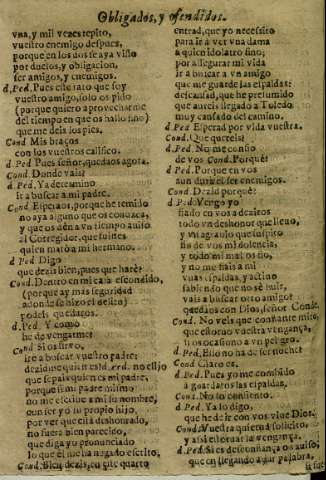 Obligados, y ofendidos.
vna, y mil vezes repito,
vuestro enemigo despues,
porque en los dos se aya visto
por duelos, y obligacion,
ser amigos, y enemigos.
d. Ped. Pues este rato que soy
vuestro amigo, solo os pido
(porque quiero aprovecharme
del tiempo en que os hallo fino)
que me deis los pies.
Cond. Mis braços
con los vuestros califico.
d. Ped. Pues señor, quedaos agora.
Cond. Donde vais?
d. Ped. Ya determino
ir a buscar a mi padre.
Cond. Esperad, porque he temido
no aya alguno que os conozca,
y que os dèn a vn tiempo auiso
al Corregidor, que fuistes
quien matò a mi hermano.
d. Ped. Digo
que dezis bien, pues que harè?
Cond. Dentro en mi casa escondido,
(porque ay mas seguridad
adonde se hizo el delito)
podeis quedaros.
d. Ped. Y como
he de vengarme?
Cond. Si os sirvo,
ire a buscar vuestro padre;
dezidme quien es el
que sepais quien es mi padre,
porque si mi padre mismo
no me escriue a mi su nombre,
con ser yo tu propio hijo,
por ver que està deshonrado,
no fuera bien parecido,
que diga yo pronunciado
lo que èl me ha negado escrito.
Cond. Bien dezis, en este quarto
entrad, que yo necessito
para ir a ver vna dama
a quien idolatro fino;
por assegurar mi vida
ir a buscar a vn amigo
que me guarde las espaldas:
descansad, que he presumido
que aureis llegado a Toledo
muy cansado del camino.
d. Ped. Esperad por vida vuestra.
Cond. Que quereis?
d. Ped. No me confio
de vos Cond. Porquè?
d. Ped. Porque en vos
aun dura el ser enemigos.
Cond. Dezid porque?
d. P. Vengo yo
fiado en vos a deziros
todo vn deshonor que lleuo,
y vn agrauio que suspiro
fio de vos mi dolencia,
y todo mi mal os fio,
y no me fiais a mi
vuas espaldas, y actiuo
sabiendo que no sè huir,
vais a buscar otro amigo?
quedaos con Dios, señor Conde.
Cond. No veis que con traerte mito,
que estoruo vuestra vengança,
si os ocasiono a vn peligro.
d. Ped. Ello no ha de ser noche?
Cond. Claro es.
d. Ped. Pues yo me combido
a guardaros las espaldas.
Cond. No lo consiento.
d. Ped. Ya lo digo,
que he de ir con vos viue Dios.
Cond. Vuestra quietud solicito,
y assi estoruar la vengança.
d. Ped. Si es desconfiança, os auiso,
que en llegando a ver palabra,